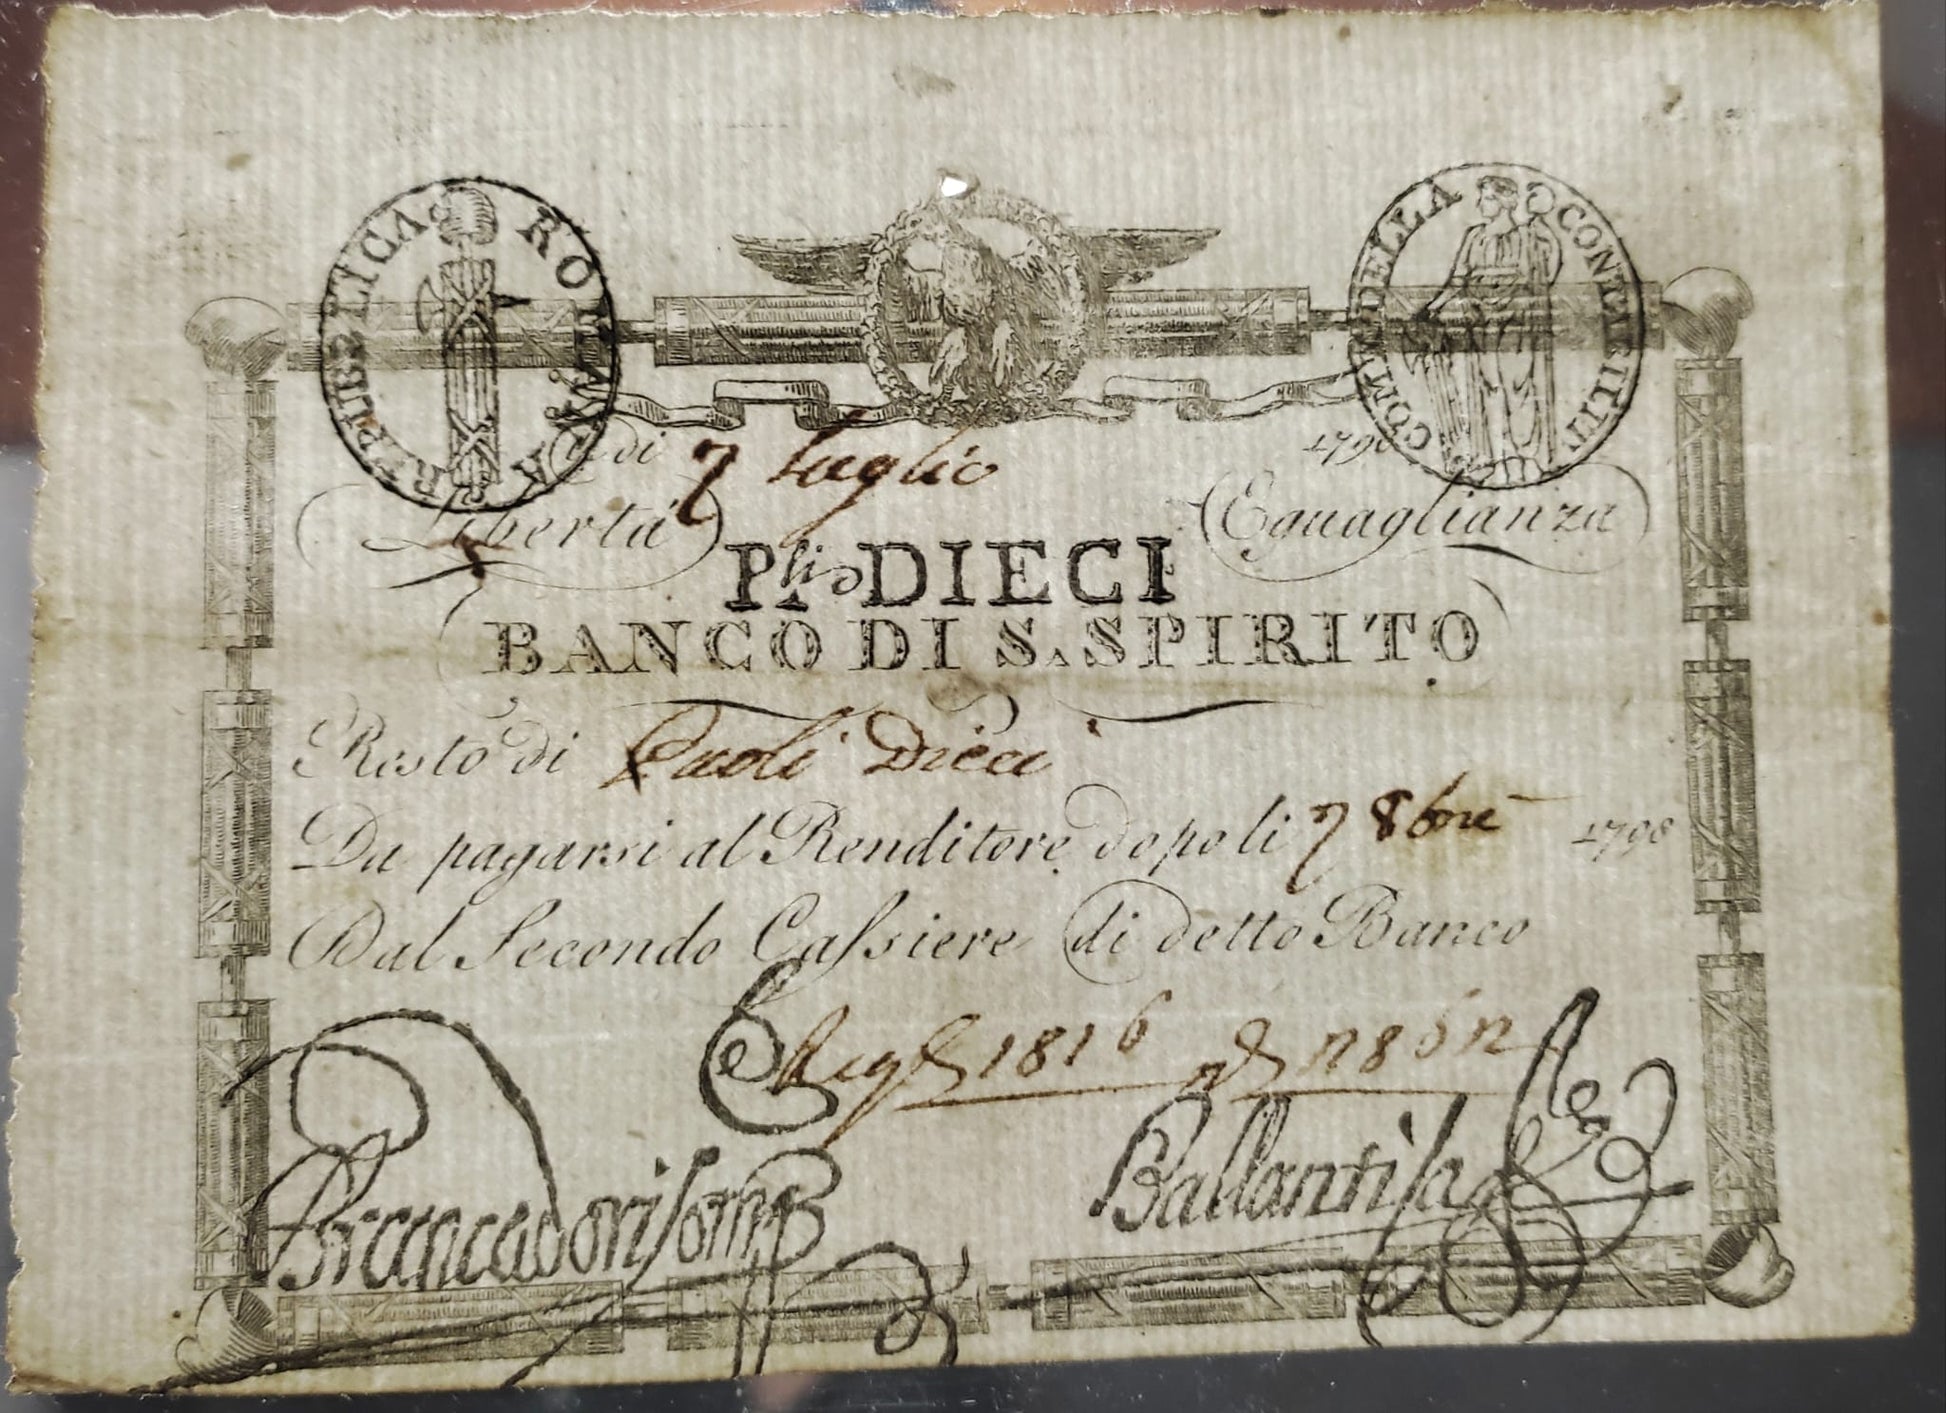 REPUBBLICA ROMANA
COM. DELLA CONTABILIT
A di 7 Luglio 1798
Libertà Eguaglianza
Pli DIECI
BANCO DI S. SPIRITO
Resto di Paoli Dieci
Da pagarsi al Renditore dopo li 7 8bre 1798
Dal Secondo Cassiere di detto Banco
1816
Brancadori
Ballanti